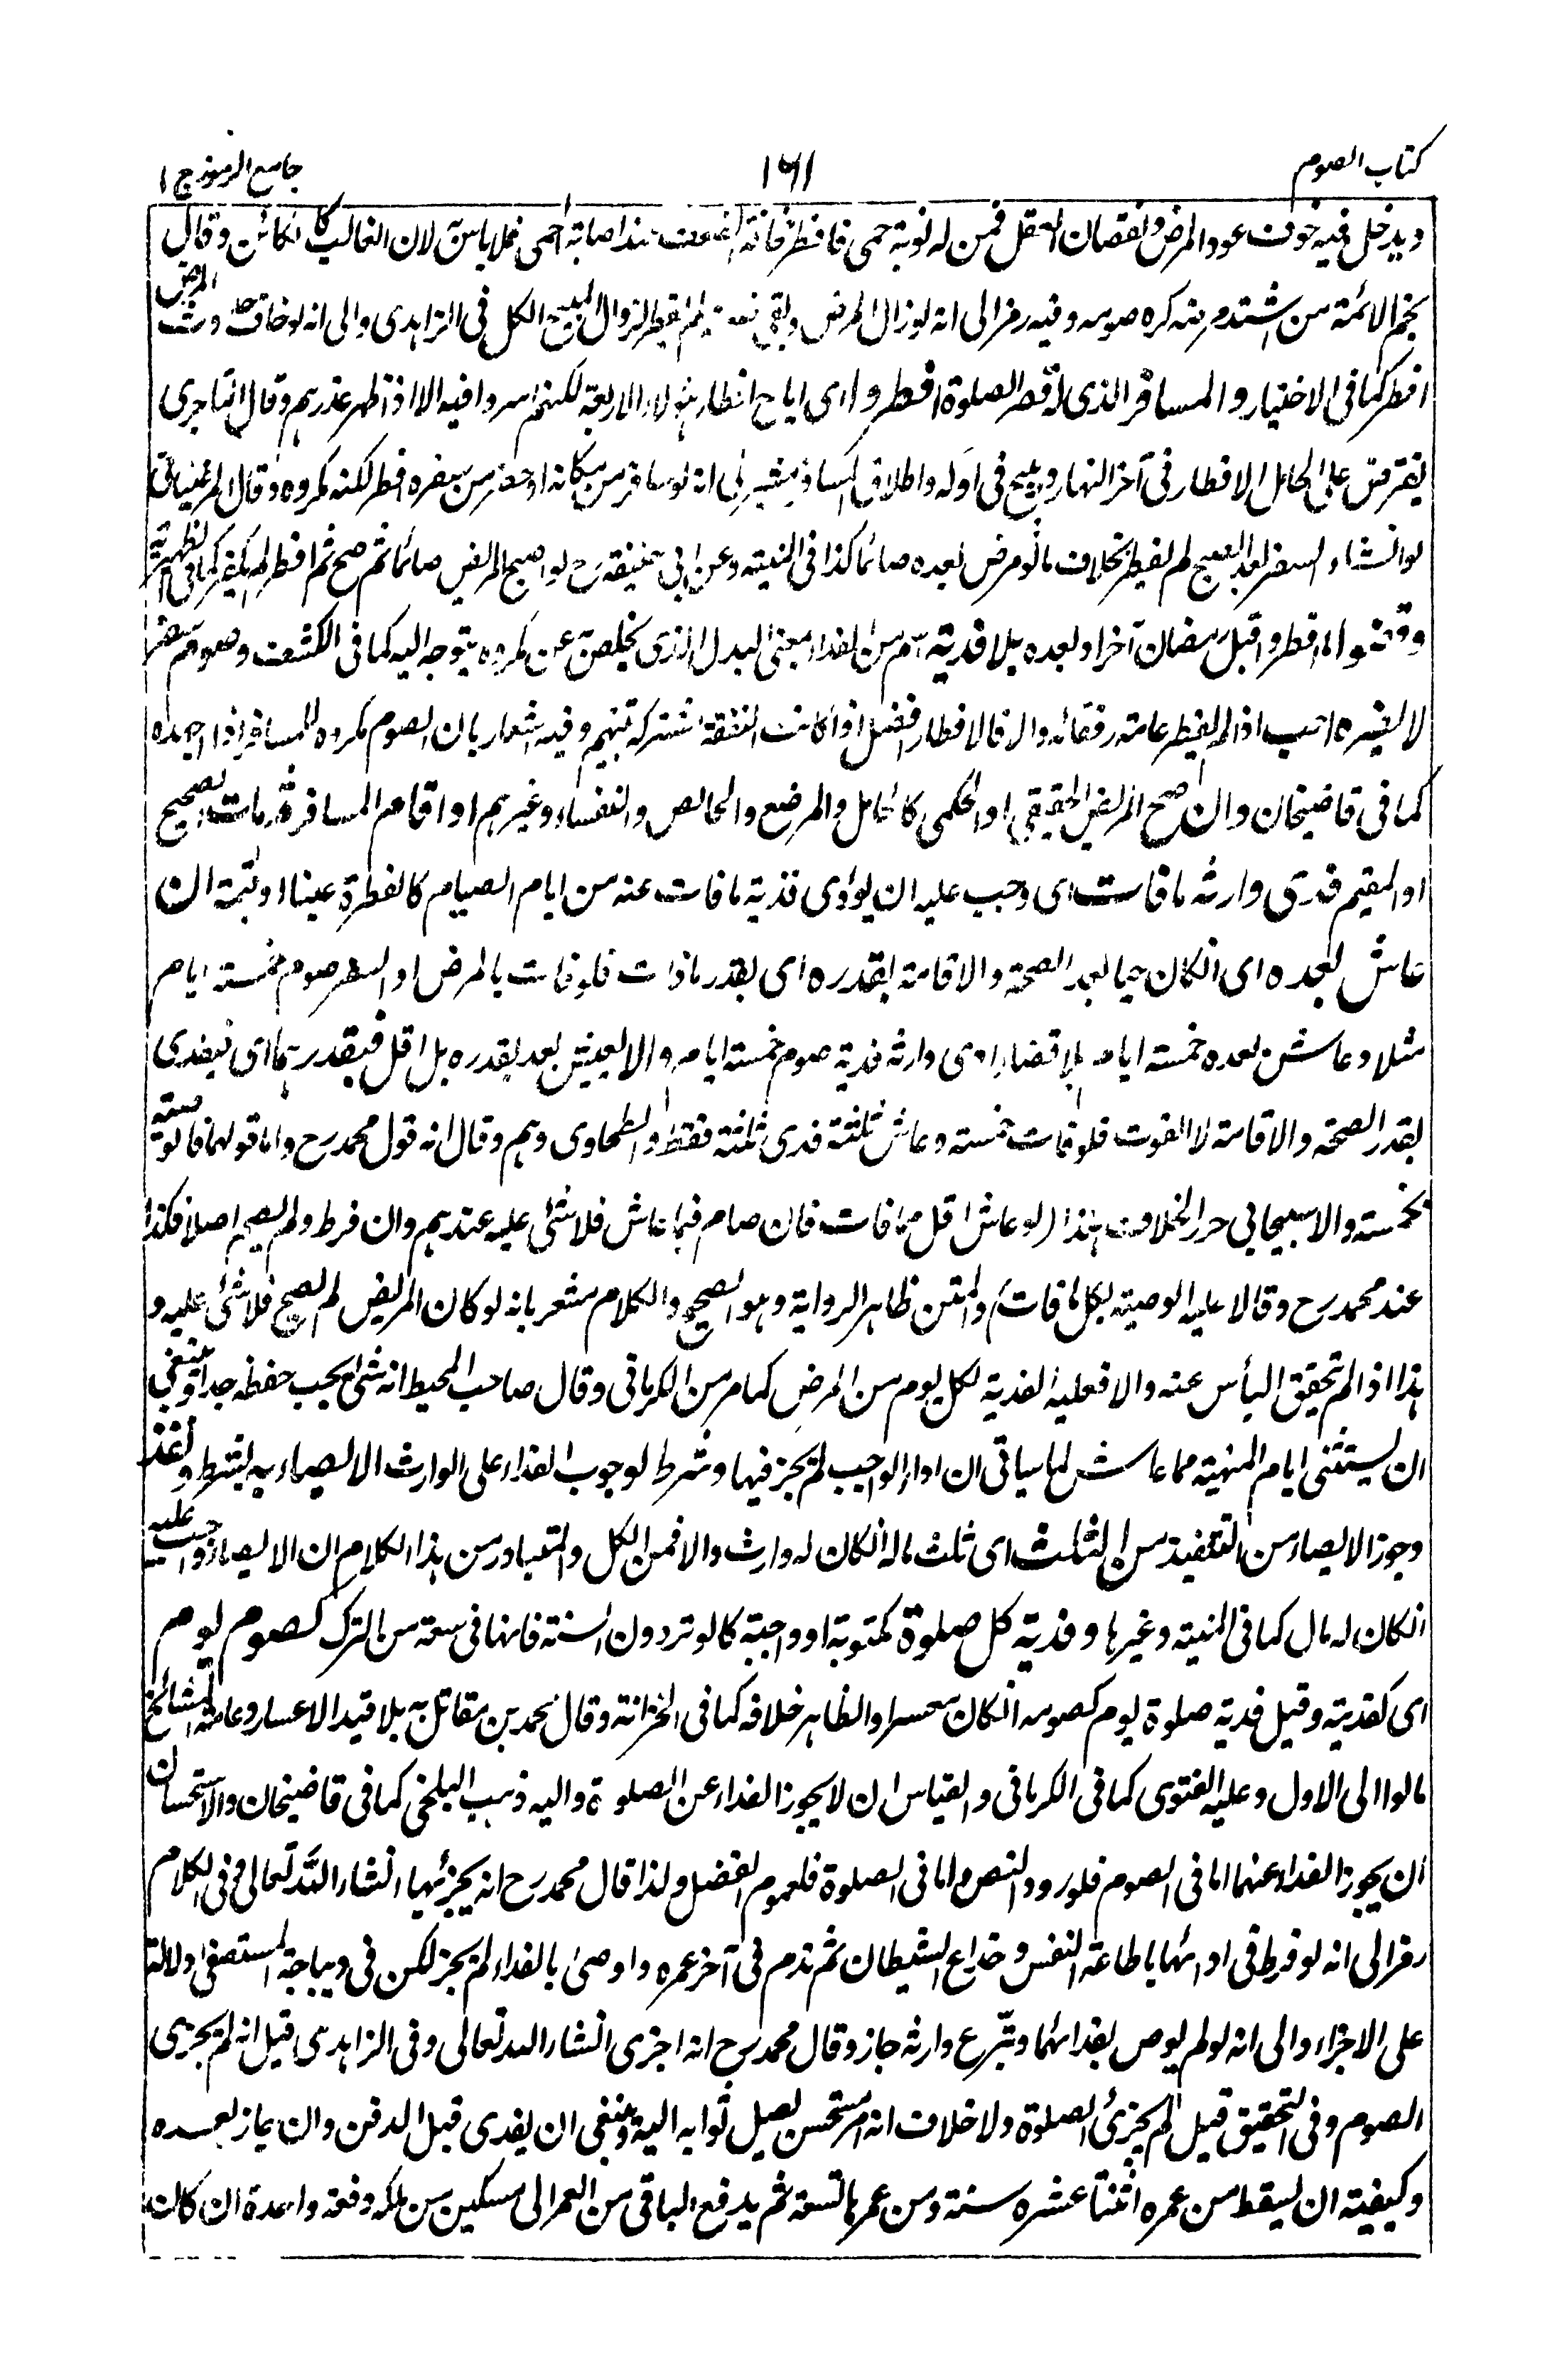 كتاب الصوم
١٦١
جامع الرموز ج ١
ويدخل فيه خوف عود المرض ونقصان العقل فمن له نوبة حمى فافطر مخافة الضعف عند اصابة الحمى فلا باس به لان الغالب كالكائن وقال
نجم الائمة من اشتد مرضه كره صومه وفيه رمز الى انه لو زال المرض وبقى ضعفه لم يفطر لزوال المبيح الكل فى الزاهدى والى انه لو خاف حدوث المرض
افطر كما فى الاختيار والمسافر الذى له قصر الصلوة افطروا اى اباح افطار هؤلاء الاربعة لكنهم اسروا فيه الا اذا ظهر عذرهم وقال التاجرى
يفترض على الحامل الافطار فى آخر النهار ويبيح فى اوله واطلاق المسافر مشير الى انه لو سافر من مكانه او حضر من سفره افطر لكنه مكروه وقال المرغينانى
لو انشاء السفر بعد الصبح لم يفطر بخلاف ما لو مرض بعده صائما كذا فى المنية وعن ابى حنيفة رح لو اصبح المريض صائما ثم صح ثم افطر لم يكفر كما فى الظهيرية
وقضوا ما افطروا قبل رمضان آخر او بعده بلا فدية اسم من الفداء بمعنى البدل الذى يخلص به عن مكروه يتوجه اليه كما فى الكشف وصوم سفر
لا يضره احب اذا لم يفطر عامة رفقائه والا فالافطار افضل اذا كانت النفقة مشتركة بينهم وفيه اشعار بان الصوم مكروه للمسافر اذا اجهده
كما فى قاضيخان وان صح المريض الحقيقى او الحكمى كالحامل والمرضع والحائض والنفساء وغيرهم او اقام المسافر ثم مات الصحيح
او المقيم فدى وارثه ما فات اى وجب عليه ان يؤدى فدية ما فات عنه من ايام الصيام كالفطرة عينا او قيمة ان
عاش بعده اى ان كان حيا بعد الصحة والاقامة بقدره اى بقدر ما فات فلو فات بالمرض او السفر صوم خمسة ايام
مثلا وعاش بعده خمسة ايام بلا قضاء ادى وارثه فدية صوم خمسة ايام والا يعش بعد بقدره بل اقل فبقدرهما اى فيفدى
بقدر الصحة والاقامة لا الفوت فلو فات خمسة وعاش ثلثة فدى ثلثة فقط والطحاوى وهم وقال انه قول محمد رح واما قولهما فالوصية
بخمسة والاسبيجابى حرر الخلاف هكذا لو عاش اقل مما فات فان صام فيما عاش فلا شئ عليه عندهم وان فرط ولم يصم اصلا فكذا
عند محمد رح وقالا عليه الوصية بكل ما فات والمتن ظاهر الرواية وهو الصحيح والكلام مشعر بانه لو كان المريض لم يصح فلا شئ عليه و
هذا اذا لم تحقق اليأس عنه والا فعليه الفدية لكل يوم من المرض كما مر من الكرمانى وقال صاحب المحيط انه شئ يجب حفظه جدا وينبغى
ان يستثنى ايام المنهية مما عاش لما سياتى ان اداء الواجب لم يجز فيها وشرط لوجوب الفداء على الوارث الايصاء به يشترط ونفذ
وجوز الايصاء من التنفيذ من الثلث اى ثلث ماله ان كان له وارث والا فمن الكل والمتبادر من هذا الكلام ان الايصاء واجب عليه
ان كان له مال كما فى المنية وغيرها وفدية كل صلوة مكتوبة او واجبة كالوتر دون السنة فانها فى سعة من الترك كصوم يوم
اى كفديته وقيل فدية صلوة يوم كصومه ان كان معسرا والظاهر خلافه كما فى الخزانة وقال محمد بن مقاتل به بلا قيد الاعسار وعامة المشائخ
مالوا الى الاول وعليه الفتوى كما فى الكرمانى والقياس ان لا يجوز الفداء عن الصلوة واليه ذهب البلخى كما فى قاضيخان والاستحسان
ان يجوز الفداء عنهما اما فى الصوم فلورود النص واما فى الصلوة فلعموم الفضل ولذا قال محمد رح انه يجزئها انشاء الله تعالى وفى الكلام
رمز الى انه لو فرط فى ادائها باطاعة النفس وخداع الشيطان ثم ندم فى آخر عمره واوصى بالفداء لم يجز لكن فى ديباجة المستصفى دلالة
على الاجزاء والى انه لو لم يوص بفدائهما وتبرع وارثه جاز وقال محمد رح انه اجزى انشاء الله تعالى وفى الزاهدى قيل انه لم يجزى
الصوم وفى التحقيق قيل لم يجزئ الصلوة ولا خلاف انه امر مستحسن يصل ثوابه اليه وينبغى ان يفدى قبل الدفن وان جاز بعده
وكيفيته ان يسقط من عمره اثنتا عشره سنة ومن عمرها تسعة ثم يدفع الباقى من العمر الى مسكين من ملكه دفعة واحدة ان كان